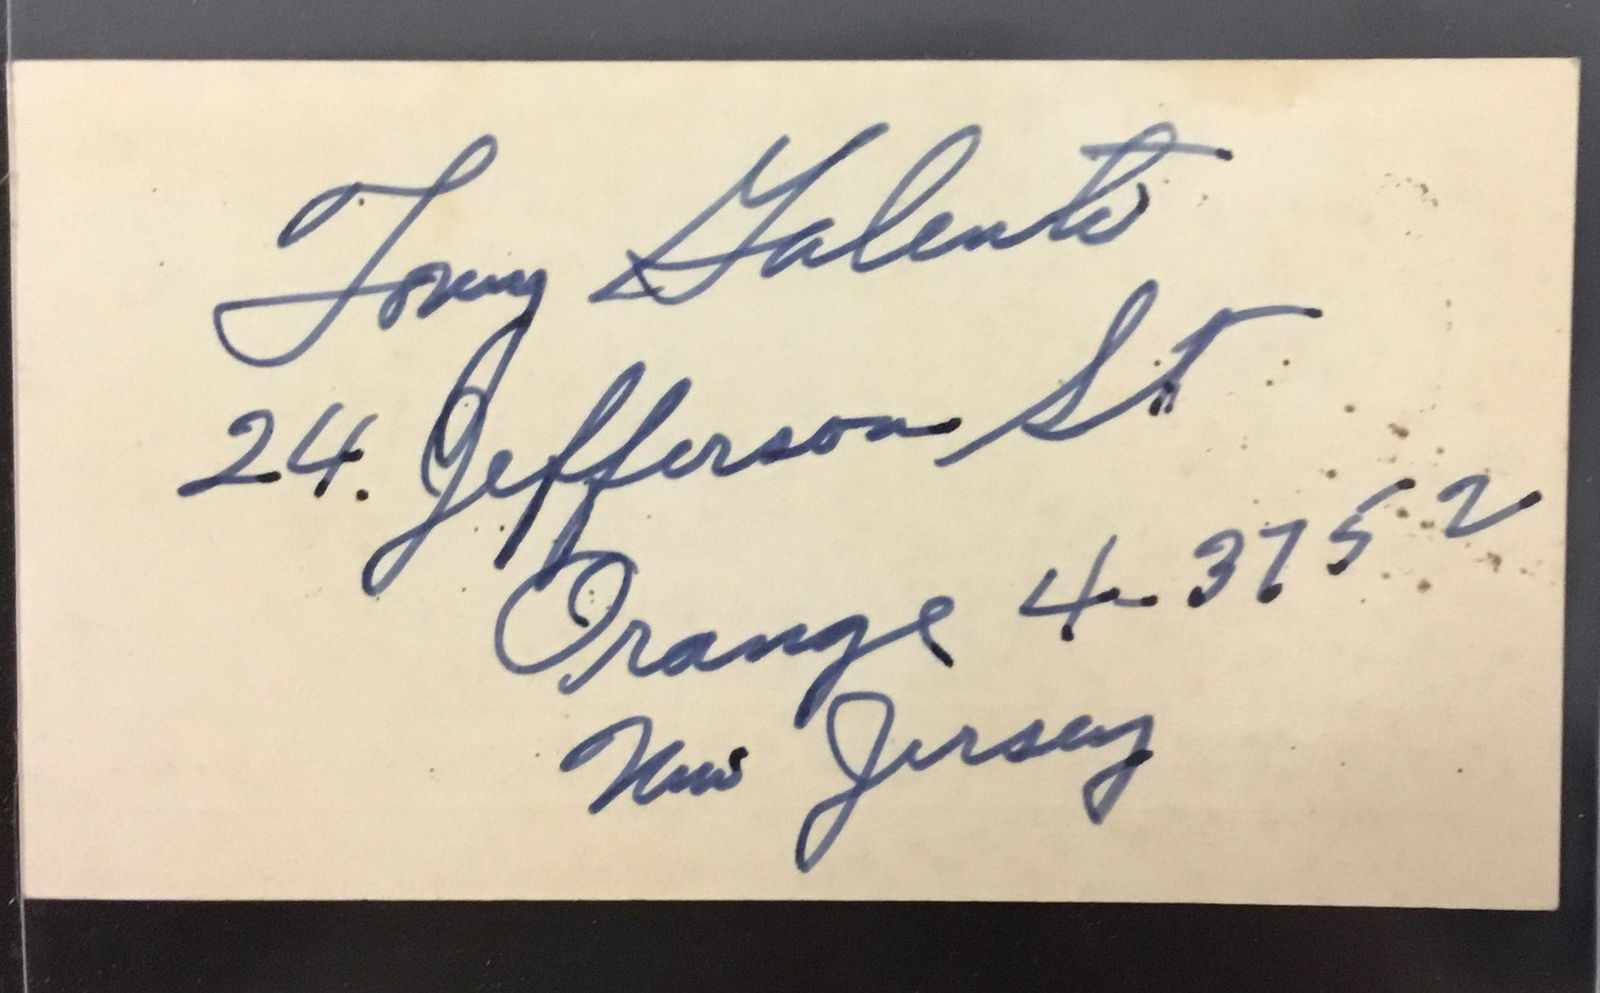 Tony Galento
24. Jefferson St
Orange 4-3752
New Jersey